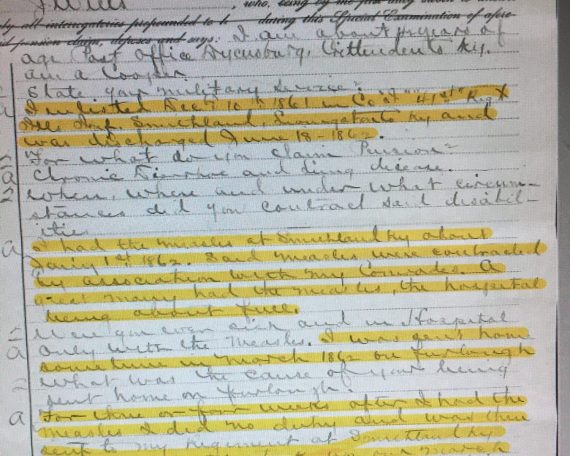 who, being by me first duly sworn to answer
all interrogatories propounded to h during this Special Examination of afore-
said pension claim, deposes and says: I am about years of
age Post Office Dycusburg, Crittenden Co Ky.
am a Cooper.
Q State your military service?
a I enlisted Dec 10th 1861 in Co 41st Regt
Ills Inf Smithland, Ky and
was discharged June 18-1862.
Q For what do you claim Pension?
a Chronic Diarrhoea and lung disease.
Q When, where and under what circum-
stances did you contract said disabil-
ities
a I had the measles at Smithland Ky about
Jan'y 1st 1862. Said measles were contracted
by association with my Comrades. A
great many had the measles, the hospital
being about full.
Q Were you ever sick and in Hospital
a Only with the Measles. I was sent home
sometime in March 1862 on furlough
Q What was the cause of your being
sent home on furlough.
a For three or four weeks after I had the
measles I did no duty and was then
sent to my Regiment at Smithland Ky
March